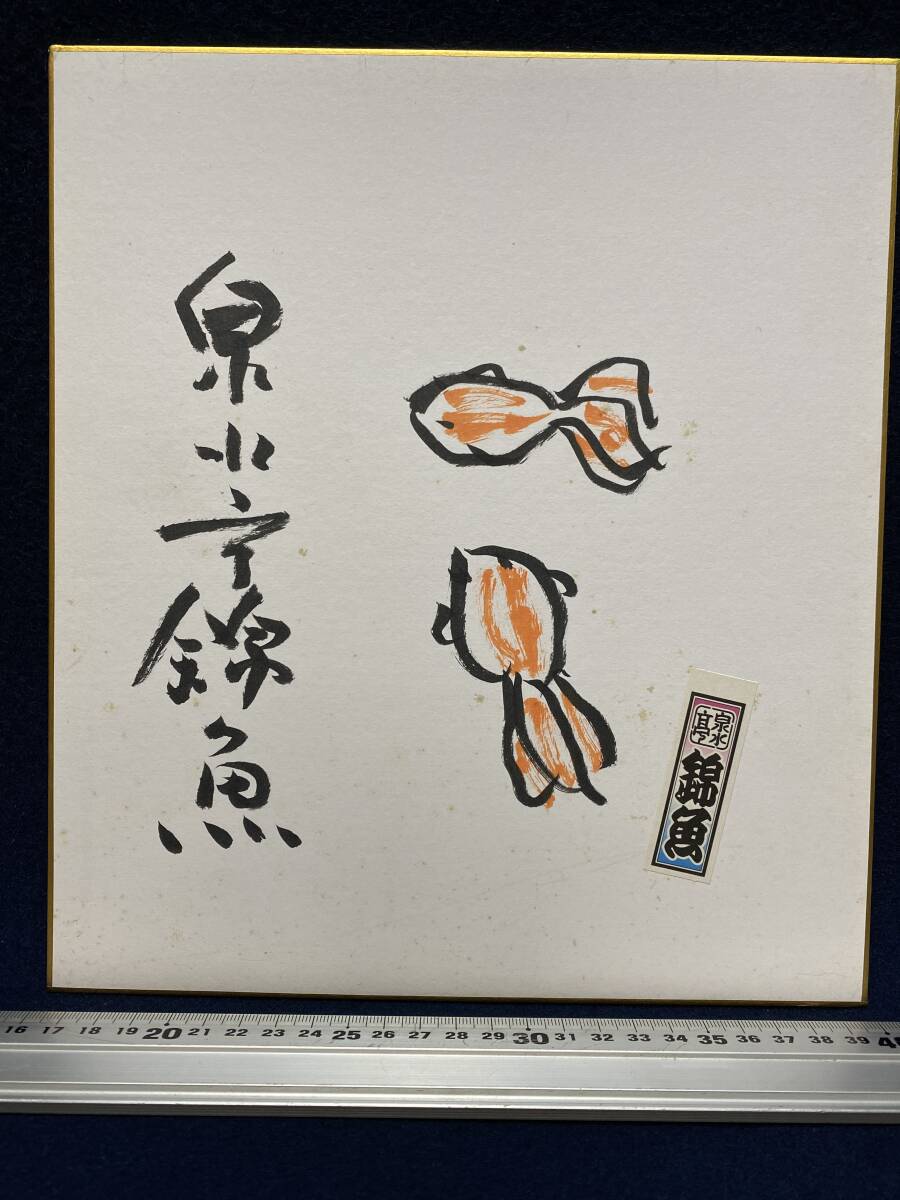 泉水亭錦魚
泉水亭
錦魚
16 17 18 19 20 21 22 23 24 25 26 27 28 29 30 31 32 33 34 35 36 37 38 39 40